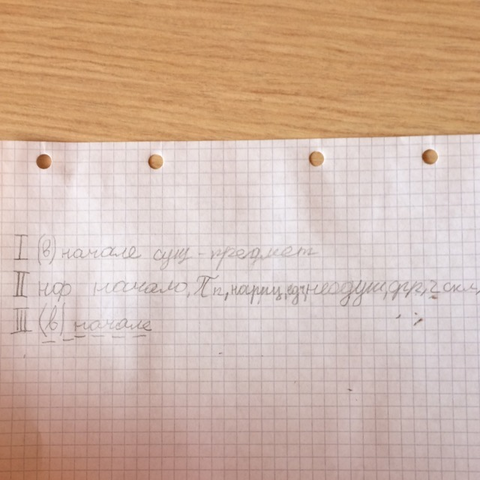 I (в) начале сущ - предмет
II нф начало, Пп, нариц, едч, неодуш, ср.р, 2 скл,
III (в) начале